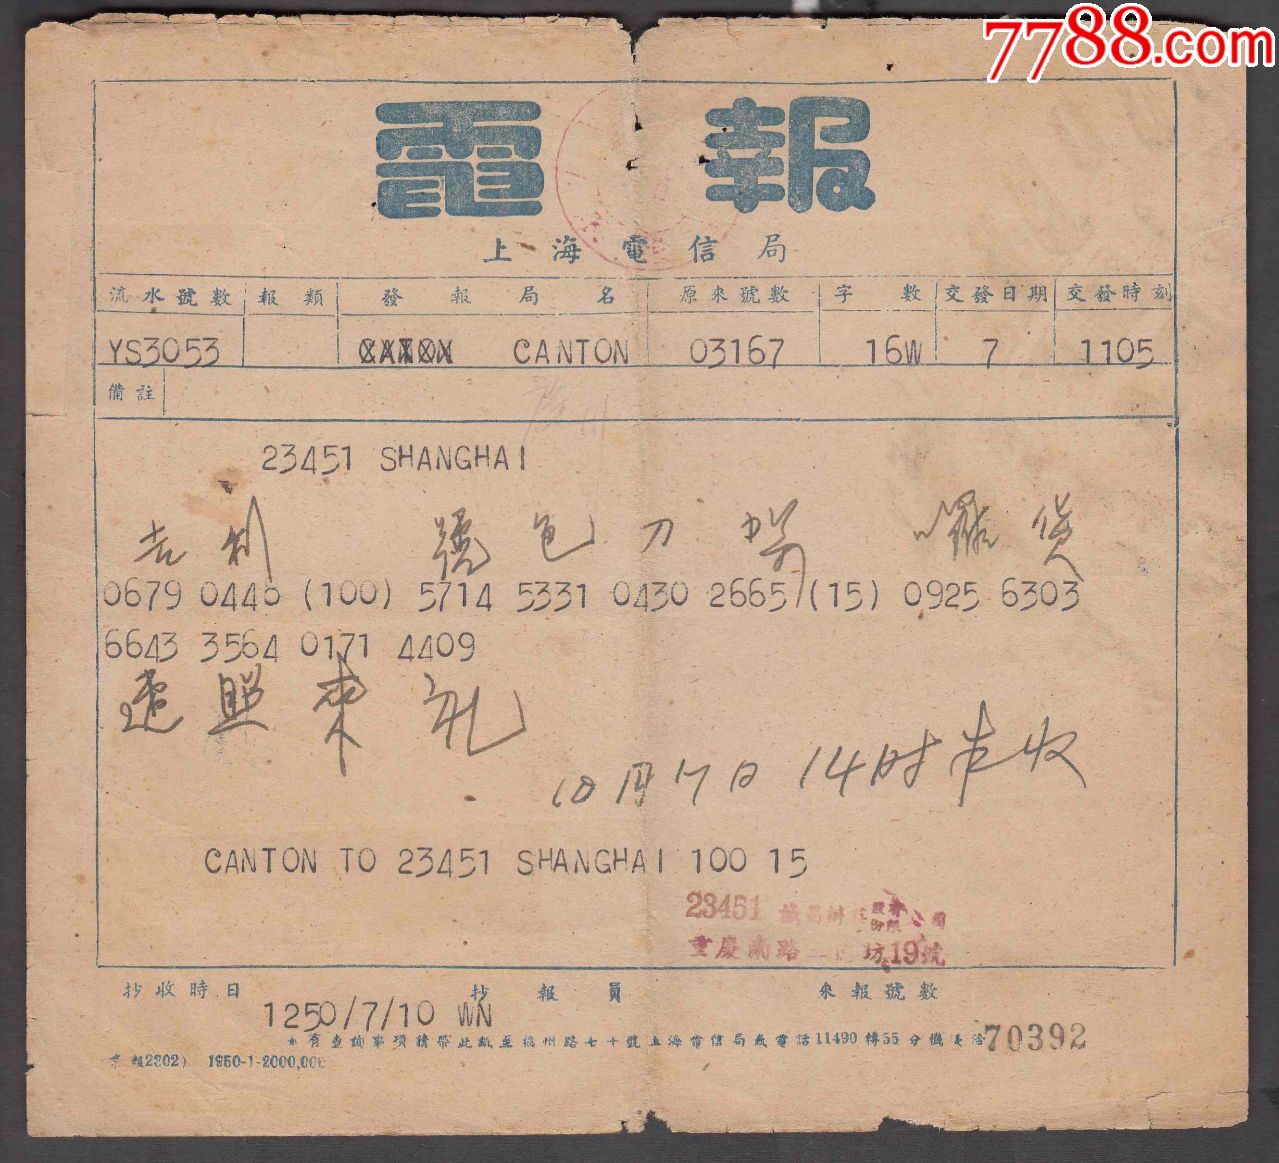 7788.com
電報
上海電信局
流水號數 報類 發報局名 原來號數 字數 交發日期 交發時刻
YS3053 CANTON CANTON 03167 16W 7 1105
備註
23451 SHANGHAI
吉利 號色刀 貨
0679 0448 (100) 5714 5331 0430 2665 (15) 0925 6303
6643 3564 0171 4409
還照來札
10月7日 14时 收
CANTON TO 23451 SHANGHAI 100 15
23451 誠昌辦莊股份 公司
重慶南路 坊19號
抄收時日 抄報員 來報號數
1250/7/10 WN
如有查詢事項請帶此紙至福州路七十號上海電信局或電話11490轉55分機接洽 70392
報2302) 1950-1-2000,000